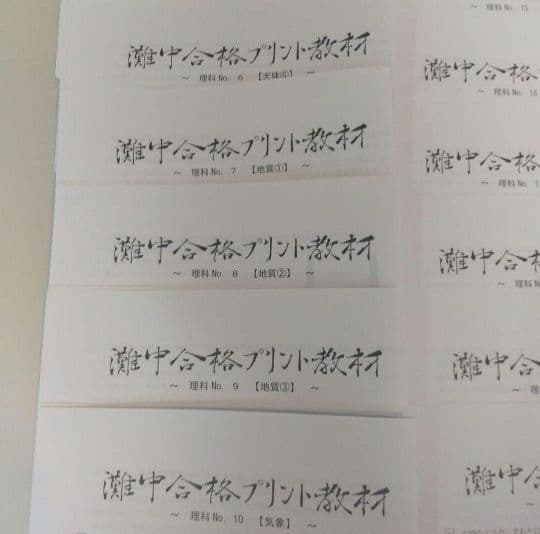 灘中合格プリント教材
～ 理科No. 6 【天体⑥】 ～
灘中合格プリント教材
～ 理科No. 7 【地質①】 ～
灘中合格プリント教材
～ 理科No. 8 【地質②】 ～
灘中合格プリント教材
～ 理科No. 9 【地質③】 ～
灘中合格プリント教材
～ 理科No. 10 【気象】 ～
～ 理科No. 15
灘中合格
～ 理科No. 16
灘中合格
～ 理科No. 1
灘中合格
～ 理科No
灘中合格
～ 理
灘中合